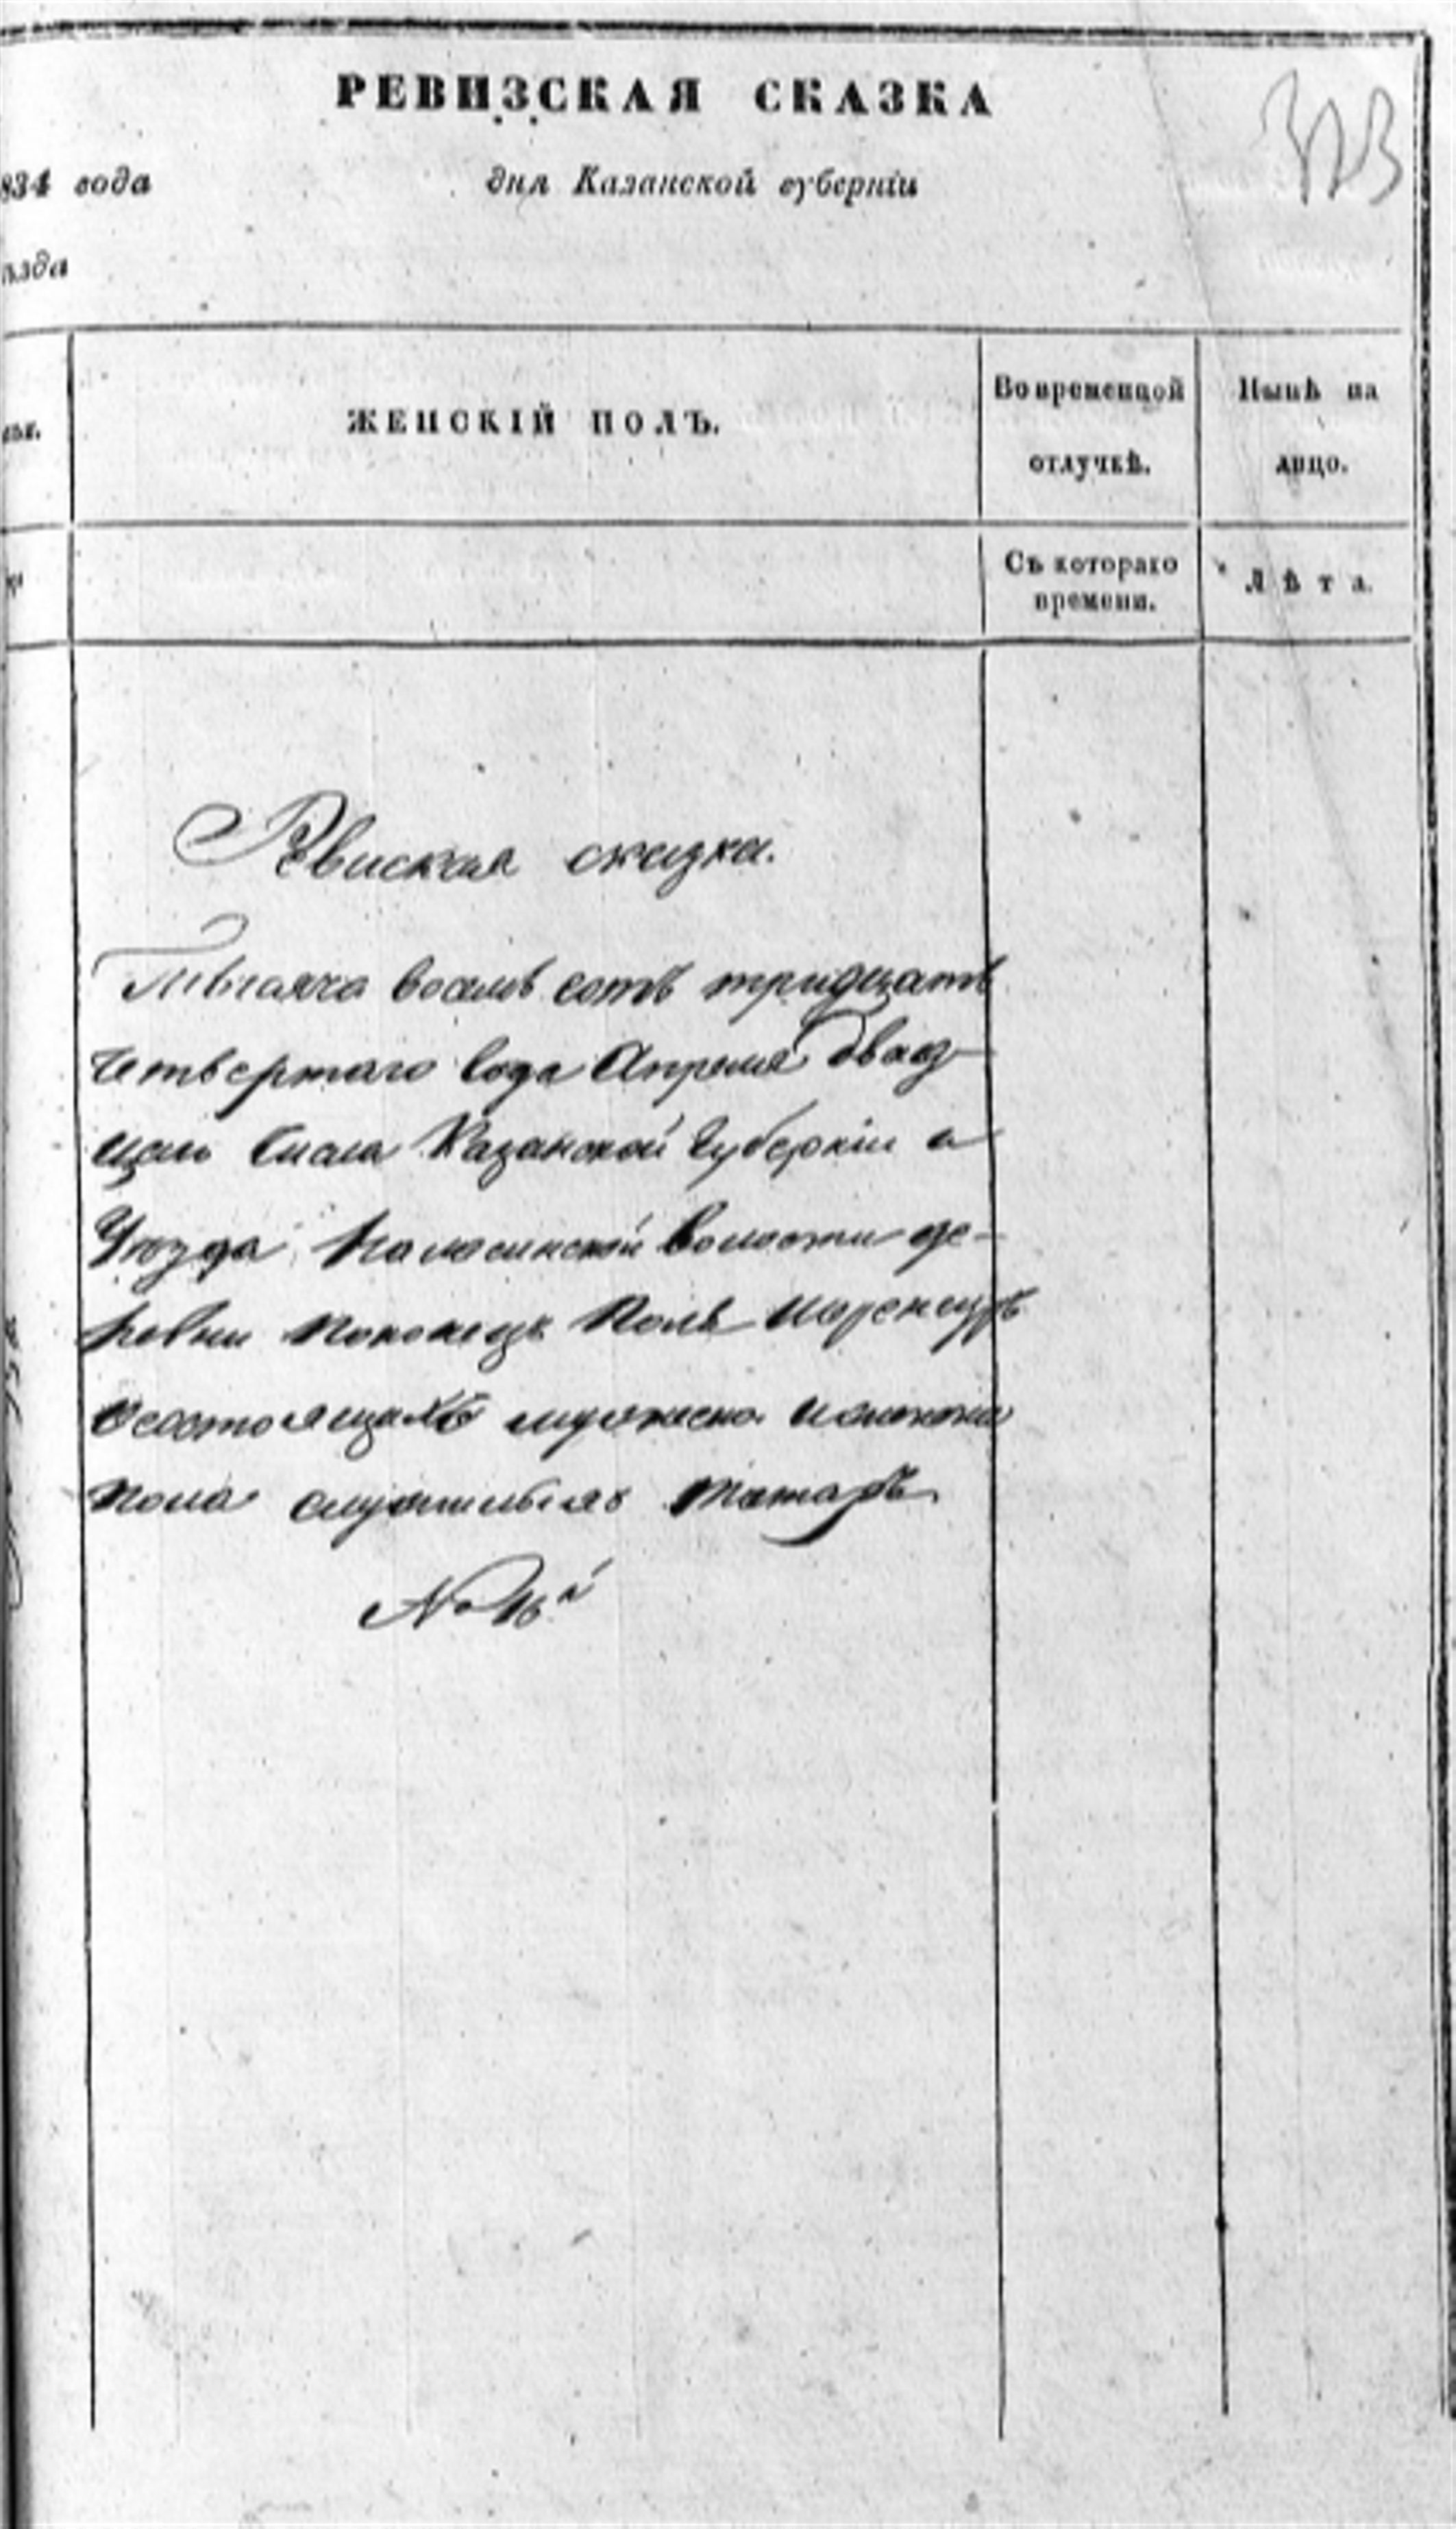 РЕВИЗСКАЯ СКАЗКА
323
834 года дня Казанской губерніи
ѣзда
ЖЕНСКІЙ ПОЛЪ.
Во временной
отлучкѣ.
Нынѣ на
лицо.
Съ котораго
времени.
Лѣта.
Ревиская сказка.
Тысяча восемь сотъ тридцать
четвертаго года Апреля двад-
цать числа Казанской Губерніи и
Уюзда волости де-
ревни
состоящихъ мужеска и женска
пола служилыхъ татаръ
№ 16й